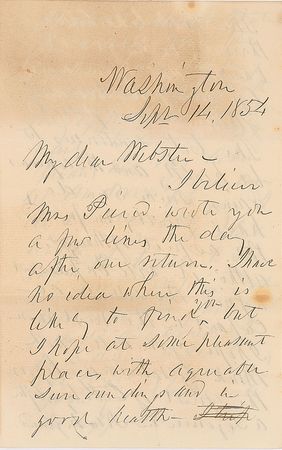 Washington
Sept 14, 1854
My dear Webster –
I believe
Mrs Peirce wrote you
a few lines the day
after our return. I have
no idea where this is
likely to find you, but
I hope at some pleasant
place with agreeable
surroundings and in
good health –